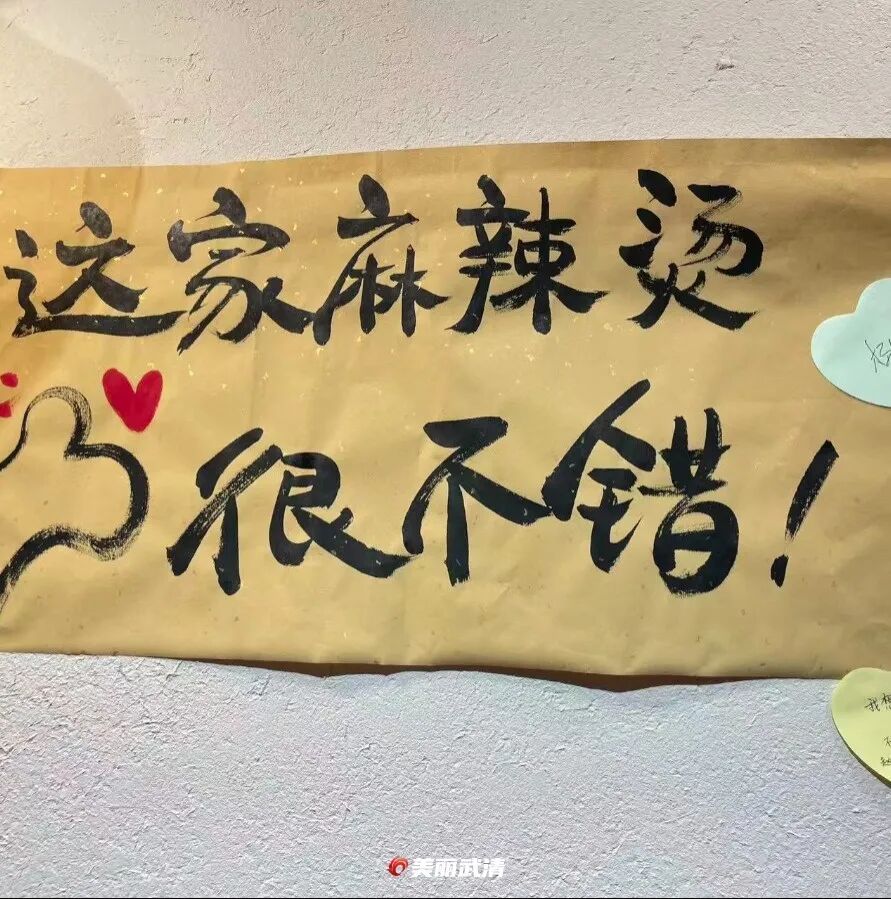 这家麻辣烫
很不错！
我想
美丽武清